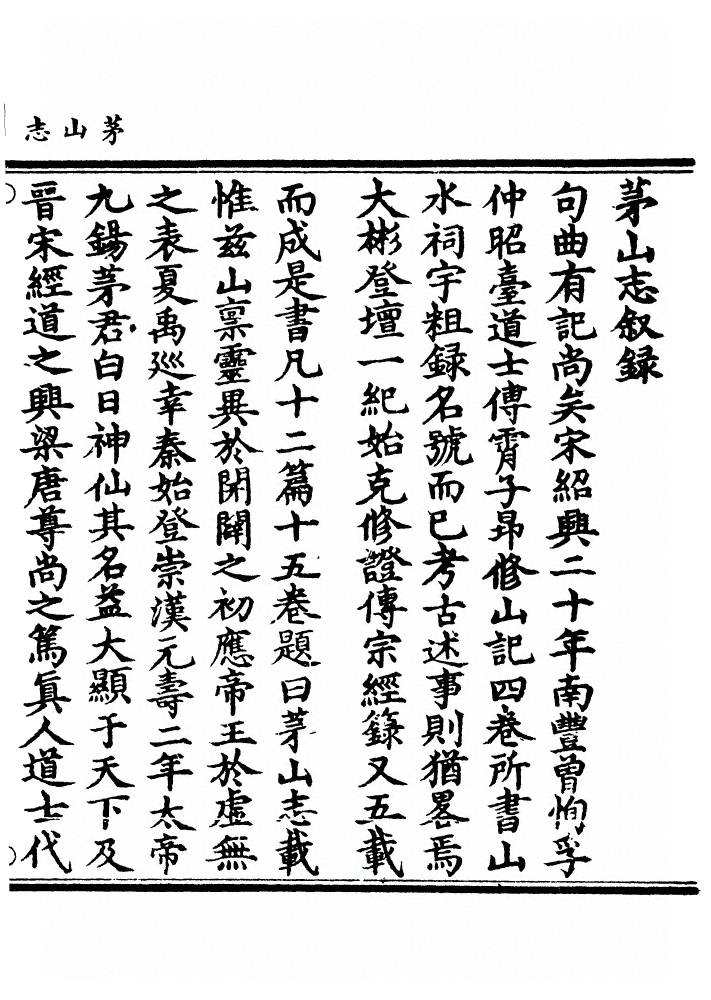 茅山志
茅山志叙録
句曲有記尚矣宋紹興二十年南豐曾恂孚
仲昭臺道士傅霄子昂修山記四卷所書山
水祠宇粗録名號而已考古述事則猶畧焉
大彬登壇一紀始克修證傳宗經籙又五載
而成是書凡十二篇十五卷題曰茅山志載
惟茲山禀靈異於開闢之初應帝王於虛無
之表夏禹廵幸秦始登崇漢元壽二年太帝
九錫茅君白日神仙其名益大顯于天下及
晉宋經道之興梁唐尊尚之篤真人道士代